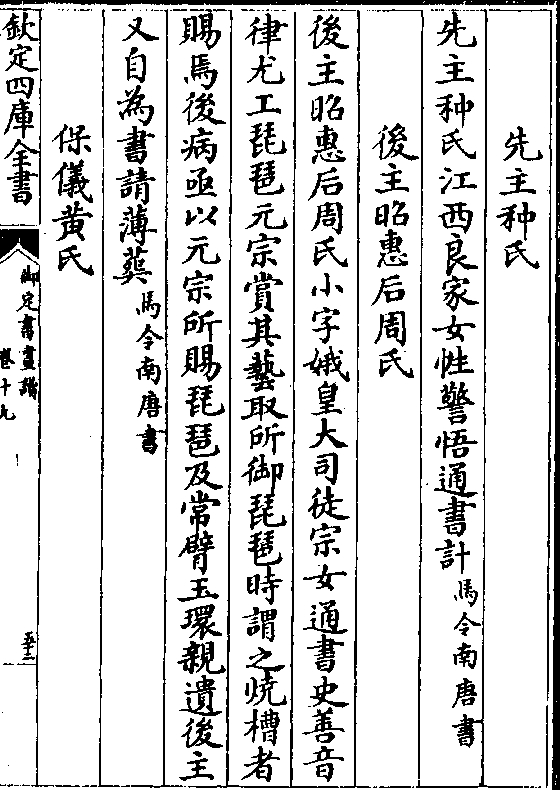 先主种氏
先主种氏江西良家女性警悟通書計馬令南唐書
後主昭惠后周氏
後主昭惠后周氏小字娥皇大司徒宗女通書史善音
律尤工琵琶元宗賞其藝取所御琵琶時謂之燒槽者
賜焉後病亟以元宗所賜琵琶及常臂玉環親遺後主
又自為書請薄葬馬令南唐書
保儀黃氏
欽定四庫全書
御定書畫譜
卷十九
五十二